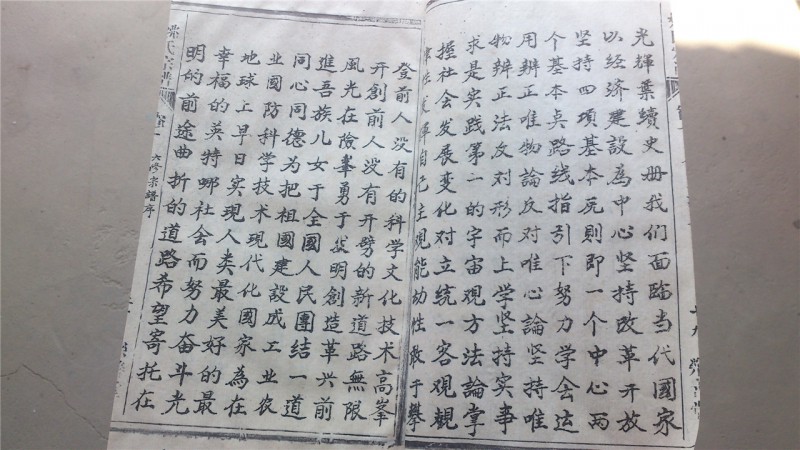 光輝業績史册我们面臨当代国家
以经济建設為中心坚持改革开放
坚持四項基本原则即一个中心两
个基本点路线指引下努力学会运
用辨正唯物論反对唯心論坚持唯
物辨正法反对形而上学坚持实事
求是实践第一的宇宙观方法論掌
握社会发展变化对立统一客观規
律性发揮自己主观能动性敢于攀
登前人没有的科学文化技术高峯
开創前人没有开劈的新道路無限
風光在險峯勇于發明創造革兴前
進吾族儿女于全國人民團结一道
同心同德为把祖國建設成工业农
业國防科学技术現代化國家為在
地球上早日实現人类最美好的最
幸福的英特哪社会而努力奋斗光
明的前途曲折的道路希望寄托在
氏宗譜
六修宗譜序